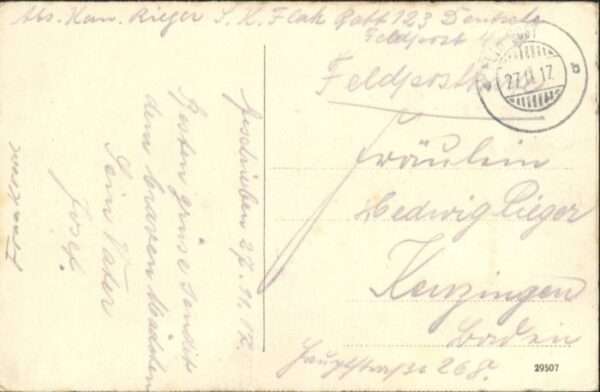 Abs. Kan. Rieger S. K. Flak Batt 123 Deutsche
Feldpost
Feldpostk
27.11.17
Fräulein
Hedwig Rieger
Kenzingen
Baden
Hauptstrasse 268
Geschrieben 27.11.17.
Besten grüse sendet
dem braven Mädchen
Dein Vater
Josef.
29507